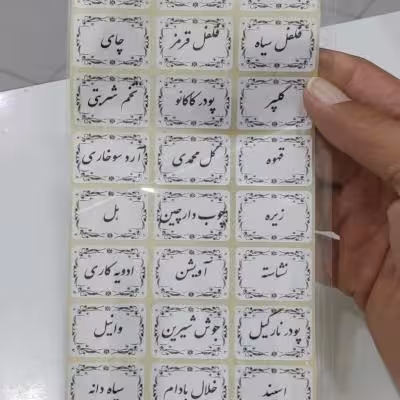 فلفل سیاه
فلفل قرمز
چای
گلپر
پودر کاکائو
تخم شربتی
قهوه
گل محمدی
آرد سوخاری
زیره
چوب دارچین
هل
نشاسته
آویشن
ادویه کاری
پودر نارگیل
جوش شیرین
وانیل
اسپند
خلال بادام
سیاه دانه